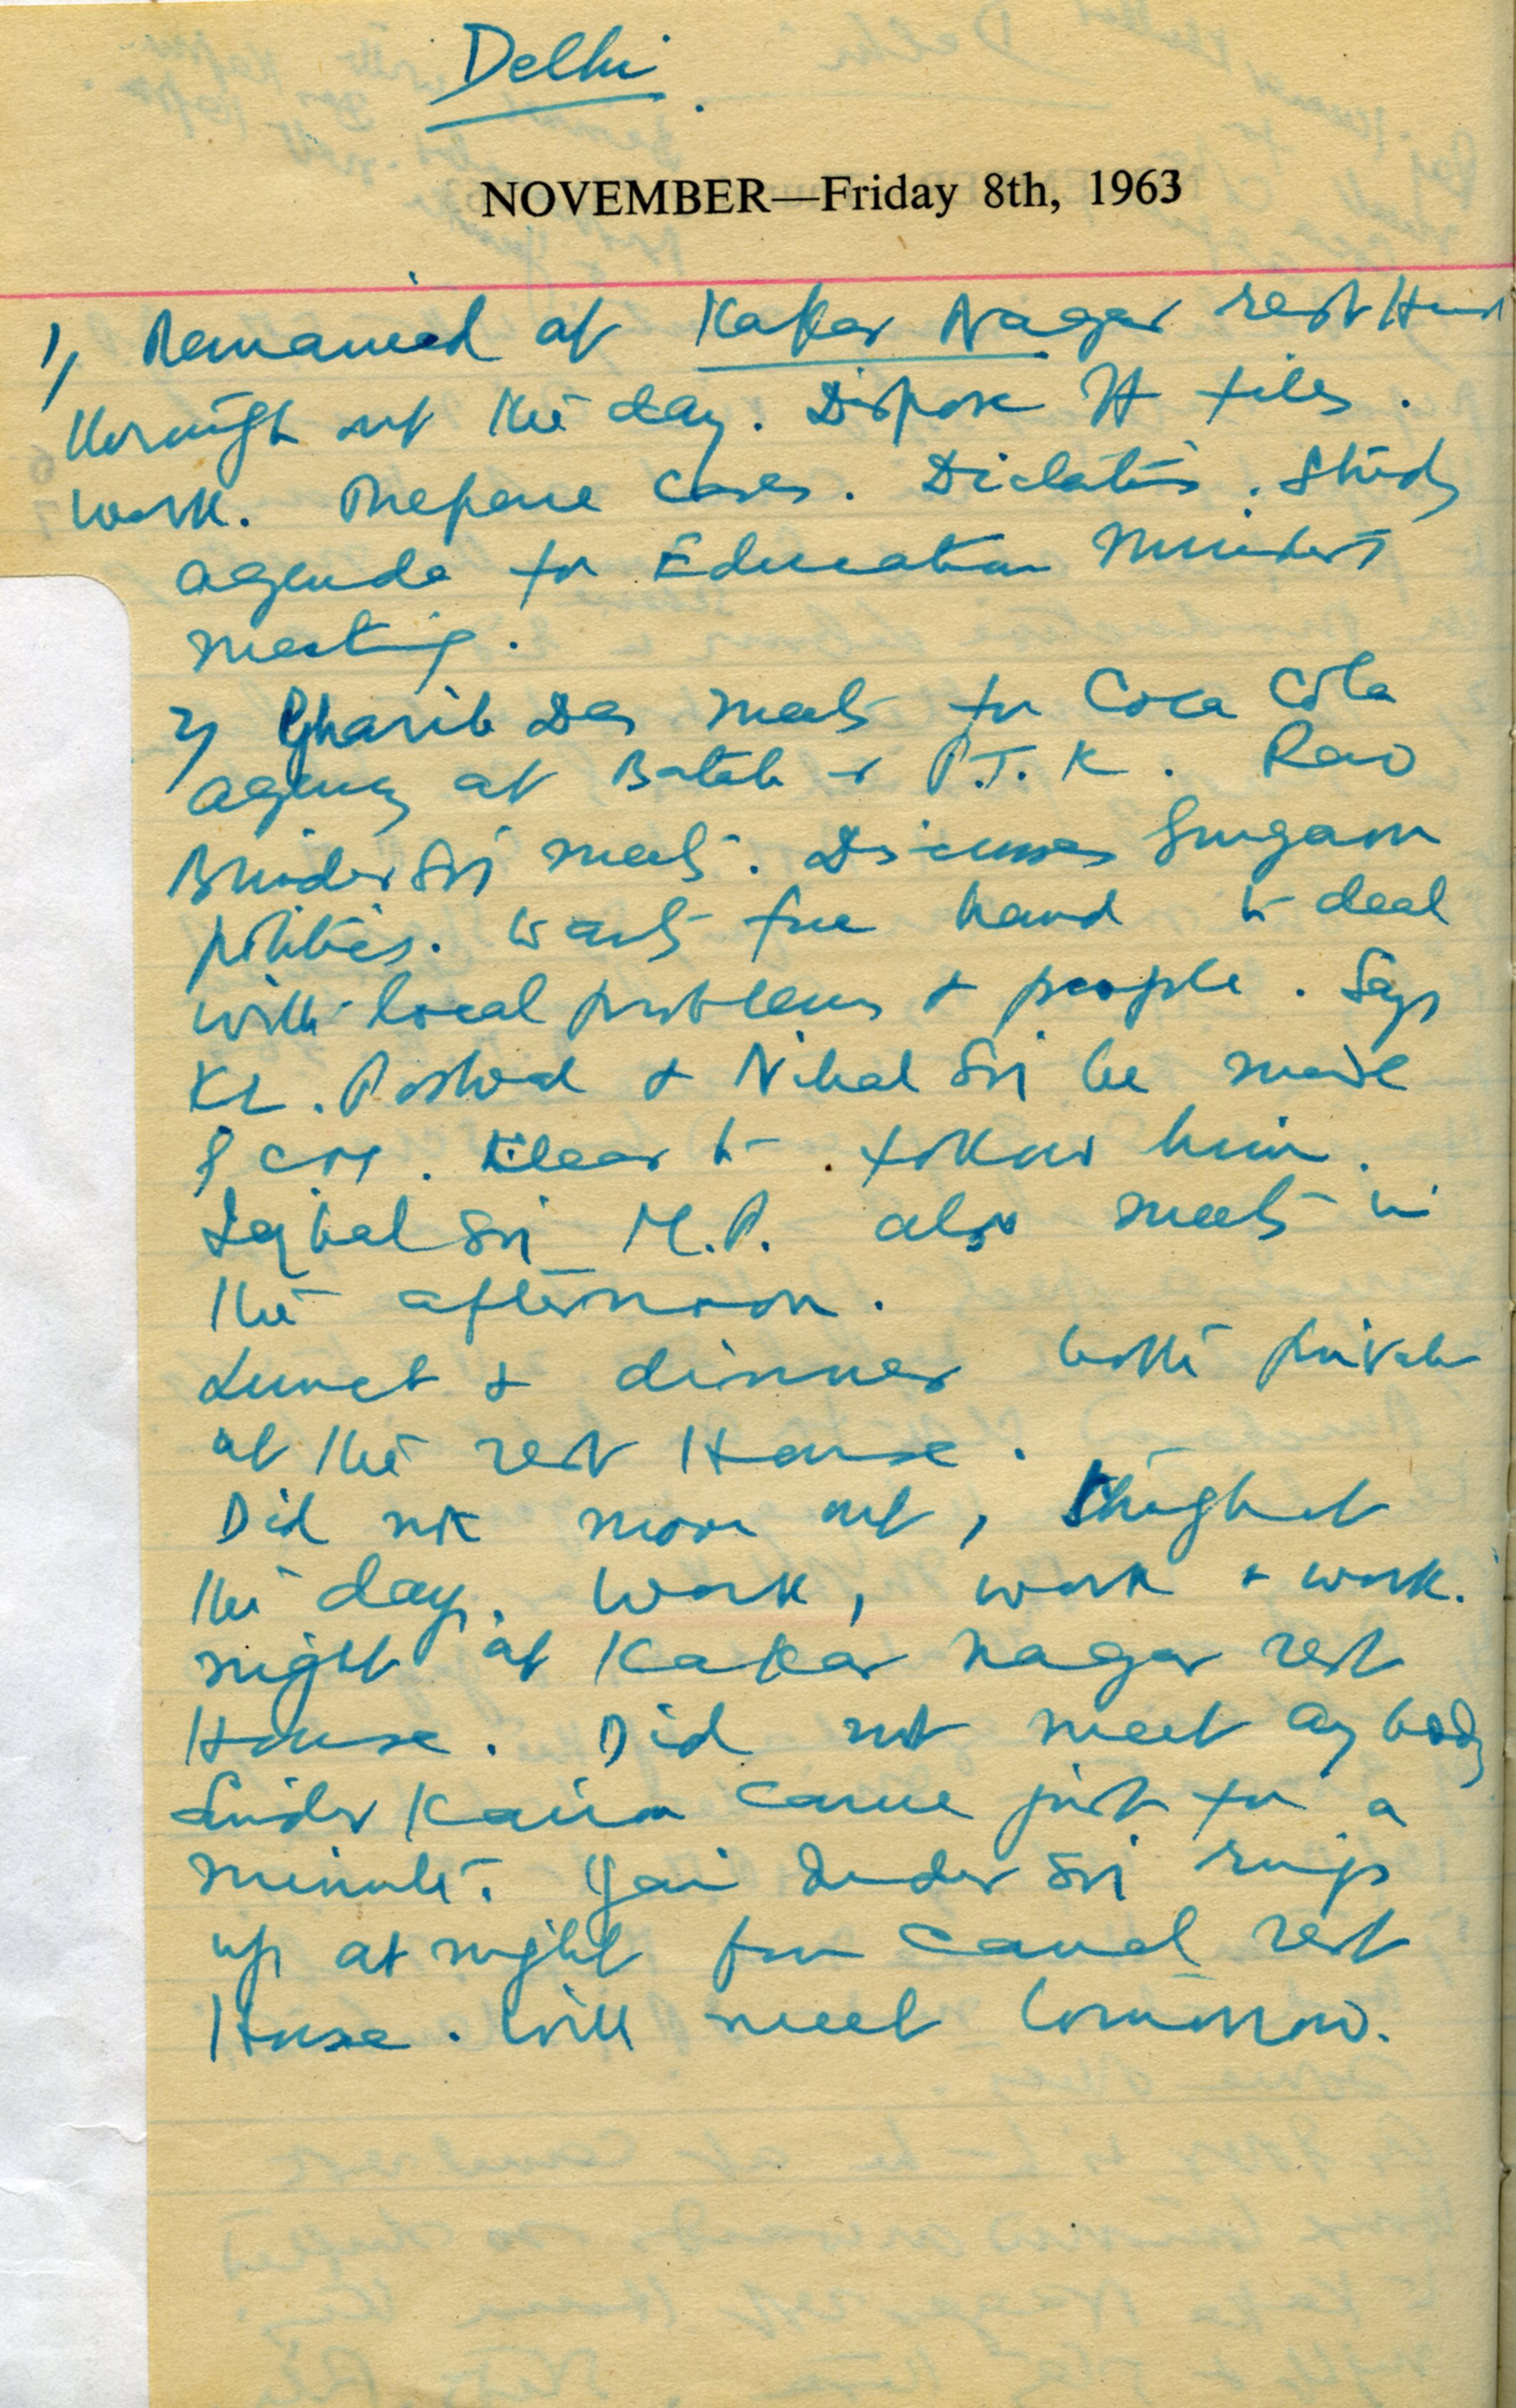 Delhi
NOVEMBER—Friday 8th, 1963
1) Remained at Kaka Nagar rest House
through out the day. Dispose of files.
work. Prepare cases. Dictation. Study
agenda for Education Ministers
meeting.
2) Gharib Das meets for Coca Cola
agency at Batala & P.T.K. Rao
Birinder Sri meets. Discusses Gurgaon
politics. Wants free hand to deal
with local problems & people. Says
& Nihal Sri be made
to follow him.
Iqbal Sri M.P. also meets in
the afternoon.
Lunch & dinner both private
at the rest House.
Did not move out, throughout
the day. Work, work & work.
night at Kaka Nagar rest
House. Did not meet any body
Kairon came just for a
minute. Gani Inder Sri rings
up at night from Canal rest
House. Will meet tomorrow.